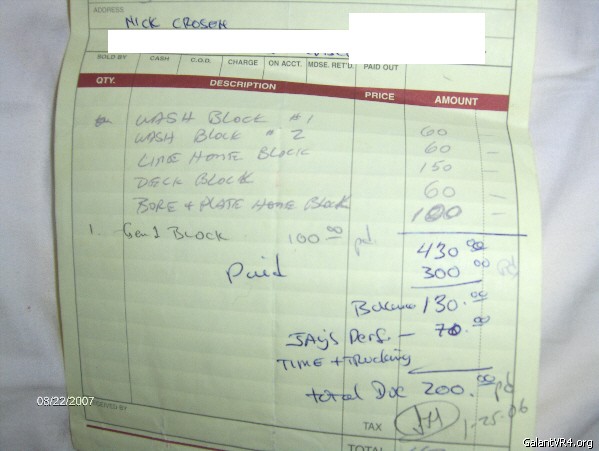 ADDRESS
NICK CROSEN
SOLD BY CASH C.O.D. CHARGE ON ACCT. MDSE. RET'D. PAID OUT
QTY. DESCRIPTION PRICE AMOUNT
WASH BLOCK #1 60 —
WASH BLOCK #2 60 —
LINE HONE BLOCK 150 —
DECK BLOCK 60 —
BORE + PLATE HONE BLOCK 100 —
1. Gen 1 BLOCK 100 00 pd.
430 00
Paid 300 00 Pd
Balance 130. 00
JAY'S Perf. — 70. 00
TIME + TRUCKING
total Due 200. 00 pd
TAX JH 1-25-06
TOTAL
08/22/2007
GalantVR4.org